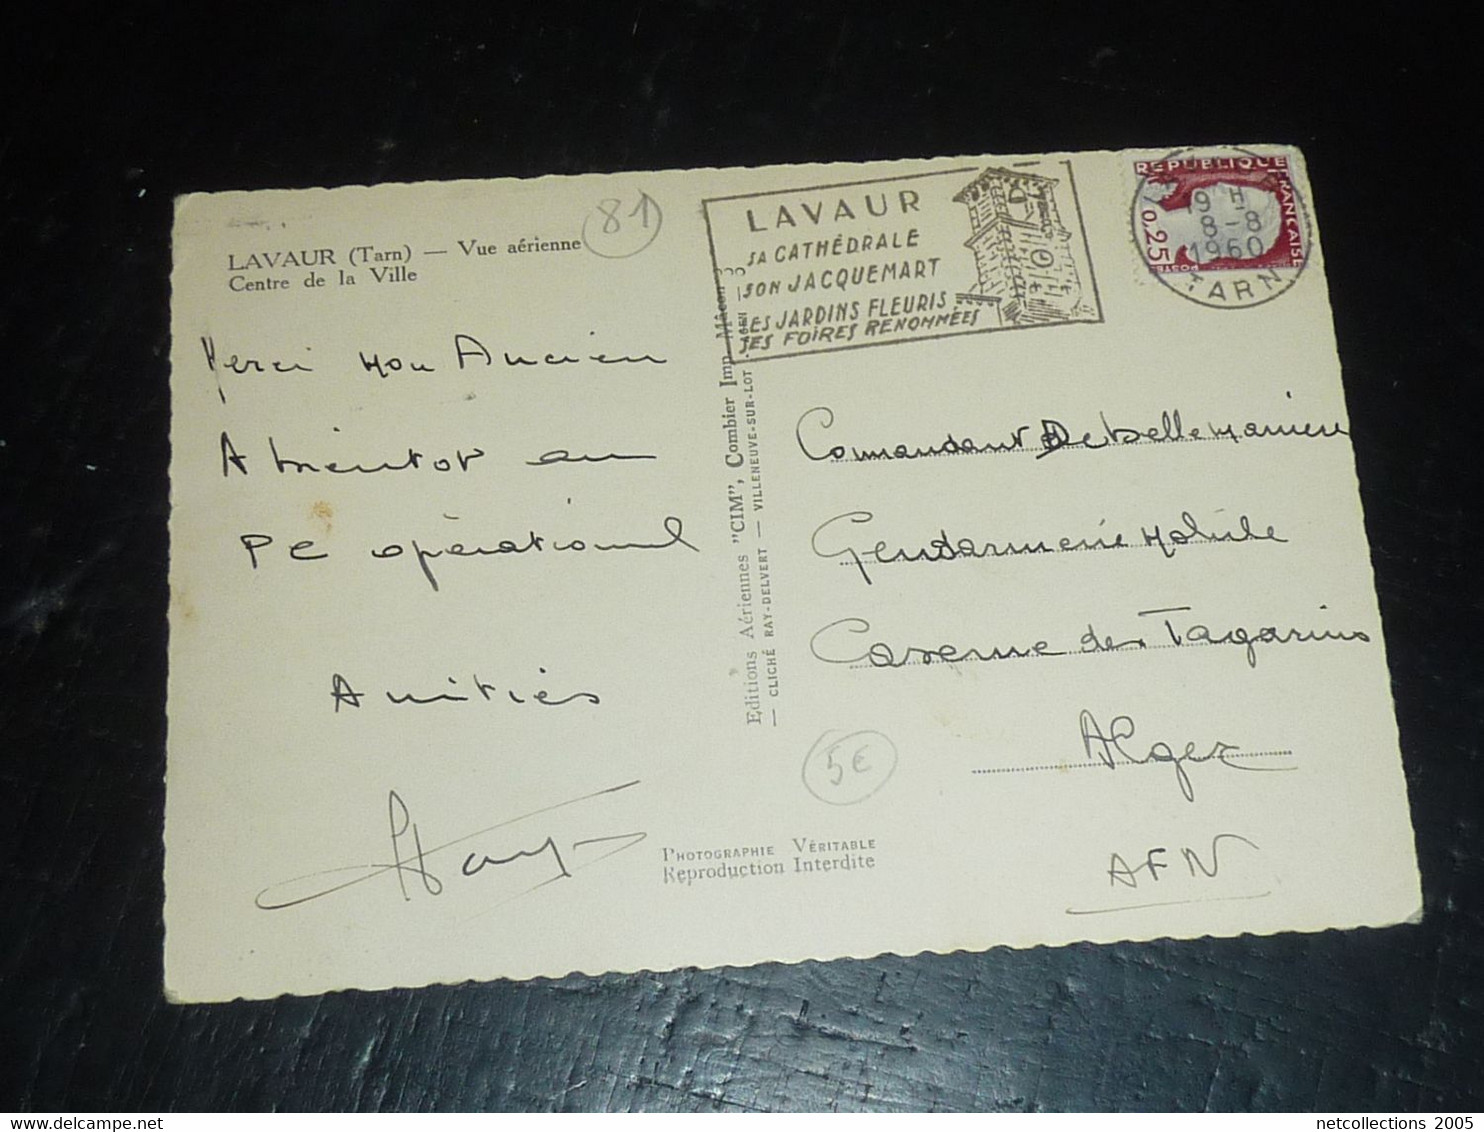 LAVAUR (Tarn) — Vue aérienne
Centre de la Ville
81
Merci mon Ancien
A bientot au
PC opérationnel
Amitiés
Editions Aériennes "CIM", Combier Imp. Mâcon
— CLICHÉ RAY-DELVERT — VILLENEUVE-SUR-LOT
LAVAUR
SA CATHÉDRALE
SON JACQUEMART
SES JARDINS FLEURIS
SES FOIRES RENOMMÉES
REPUBLIQUE FRANÇAISE
0,25
POSTES
19 H
8-8
1960
TARN
Commandant
Gendarmerie Mobile
Caserne des Tagarins
Alger
AFN
5€
PHOTOGRAPHIE VÉRITABLE
Reproduction Interdite
netcollections 2005